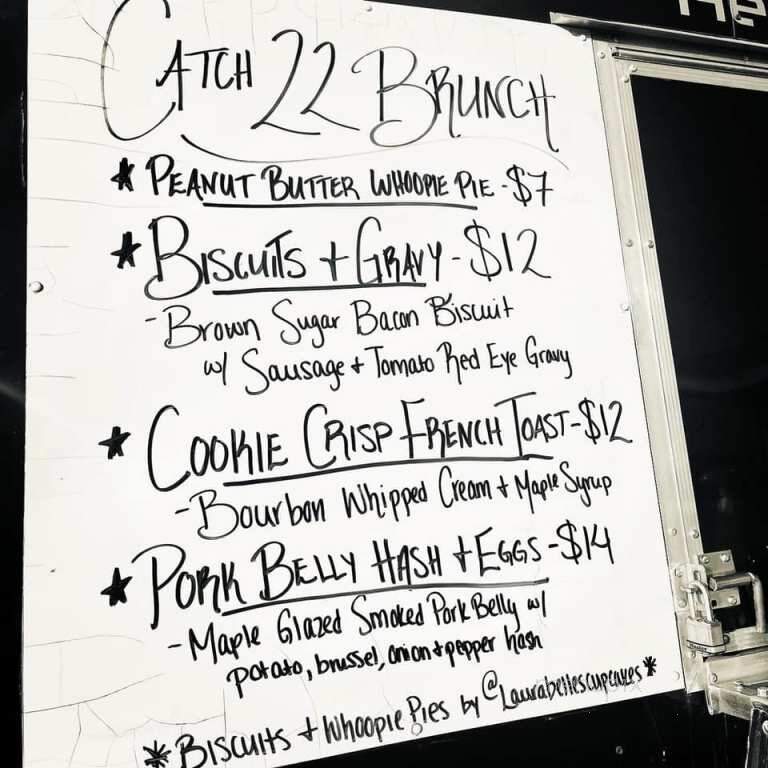 He
CATCH 22 BRUNCH
* PEANUT BUTTER WHOOPIE PIE - $7
* BISCUITS + GRAVY - $12
- Brown Sugar Bacon Biscuit
w/ Sausage + Tomato Red Eye Gravy
* COOKIE CRISP FRENCH TOAST - $12
- Bourbon Whipped Cream + Maple Syrup
* PORK BELLY HASH + EGGS - $14
- Maple Glazed Smoked Pork Belly w/
potato, brussel, onion + pepper hash
* BISCUITS + WHOOPIE PIES by @Laurabellescupcakes *